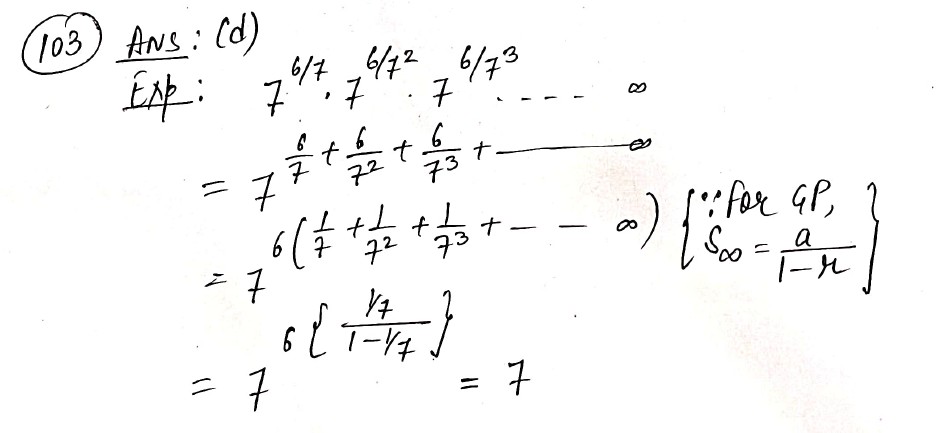 (103) Ans: (d)
Exp: 7^{6/7} . 7^{6/7^2} . 7^{6/7^3} . - - - - ∞
= 7^{6/7 + 6/7^2 + 6/7^3 + ——— ∞}
= 7^{6(1/7 + 1/7^2 + 1/7^3 + - - - ∞)} {∵ for GP, S_∞ = a/(1-r)}
= 7^{6{(1/7)/(1-1/7)}} = 7